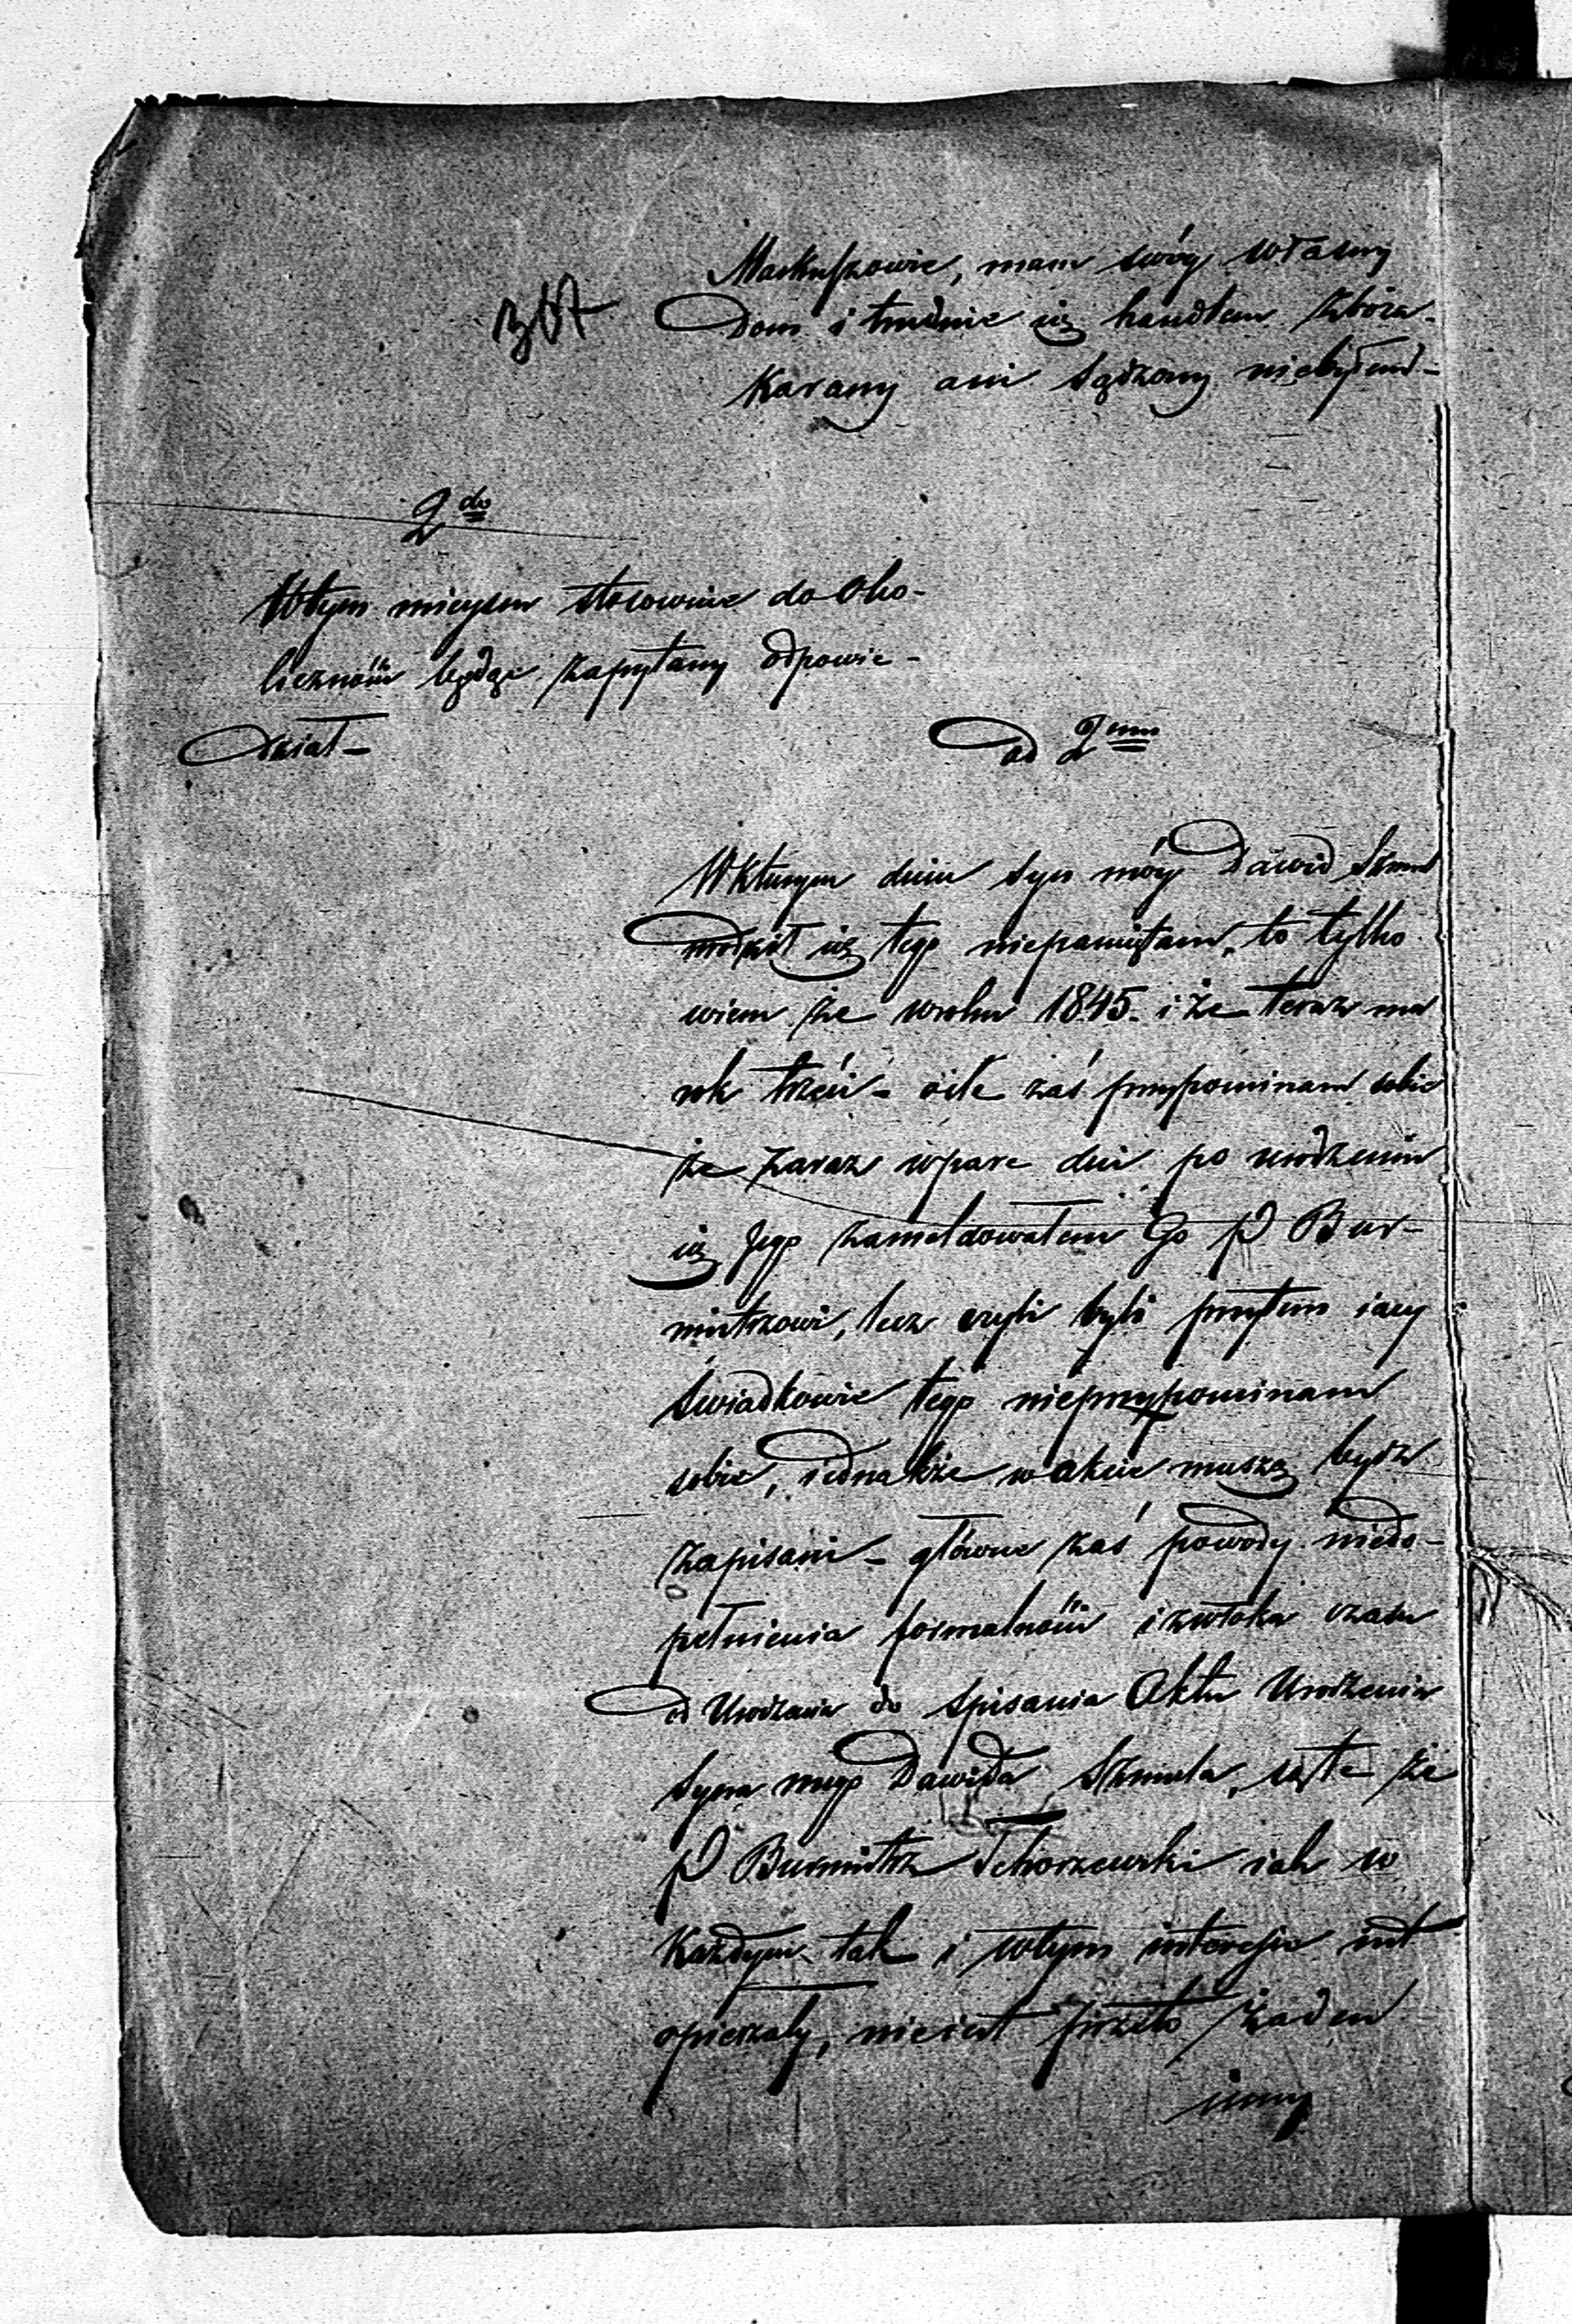 Markuszowie, mam swóy własny
367
Dom i trudnie się handlem zboża.
Karany ani sądzony niebyłem –
2do
Wtym mieyscu stosownie do Oko-
liczności będąc zapytany odpowie-
dział –
ad 2um
Wkturym dniu syn móy Dawid Szmul
urodził się tego niepamiętam, to tylko
wiem że wroku 1845. i że teraz ma
rok trzeci – oile zaś przypominam sobie
że zaraz wpare dni po urodzeniu
się Jego zameldowałem Go P Bur-
mistrzowi, lecz czyli byli przytem iacy
świadkowie tego nieprzypominam
sobie, iednakże w akcie muszą bydz
zapisani – główne zaś powody niedo-
pełnienia formalności i zwłoka czasu
od Urodzenia do spisania Aktu Urodzenia
syna mego Dawida Szmula, są te że
P Burmistrz Tchorzewski iak w
Każdym tak i wtym interesie iest
opieszały, nieiest przeto żaden
inny